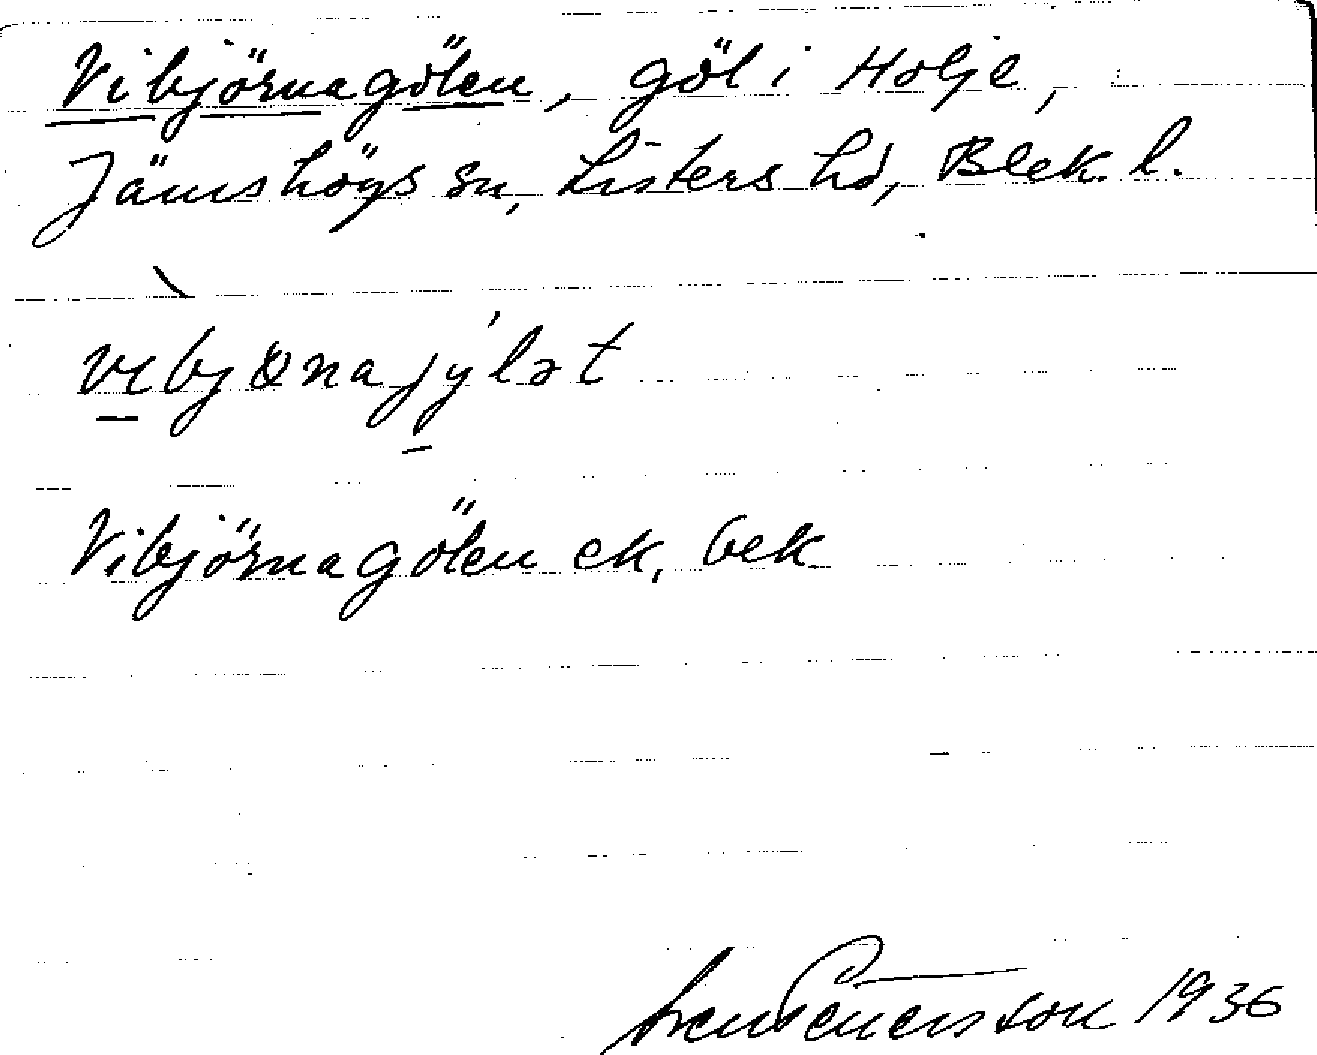 Vibjörnagölen, göl i Holje,
Jämshögs sn, Listers hd, Blek. l.
vibjønajýlət
Vibjörnagölen ek, bek
Sven Petersson 1936